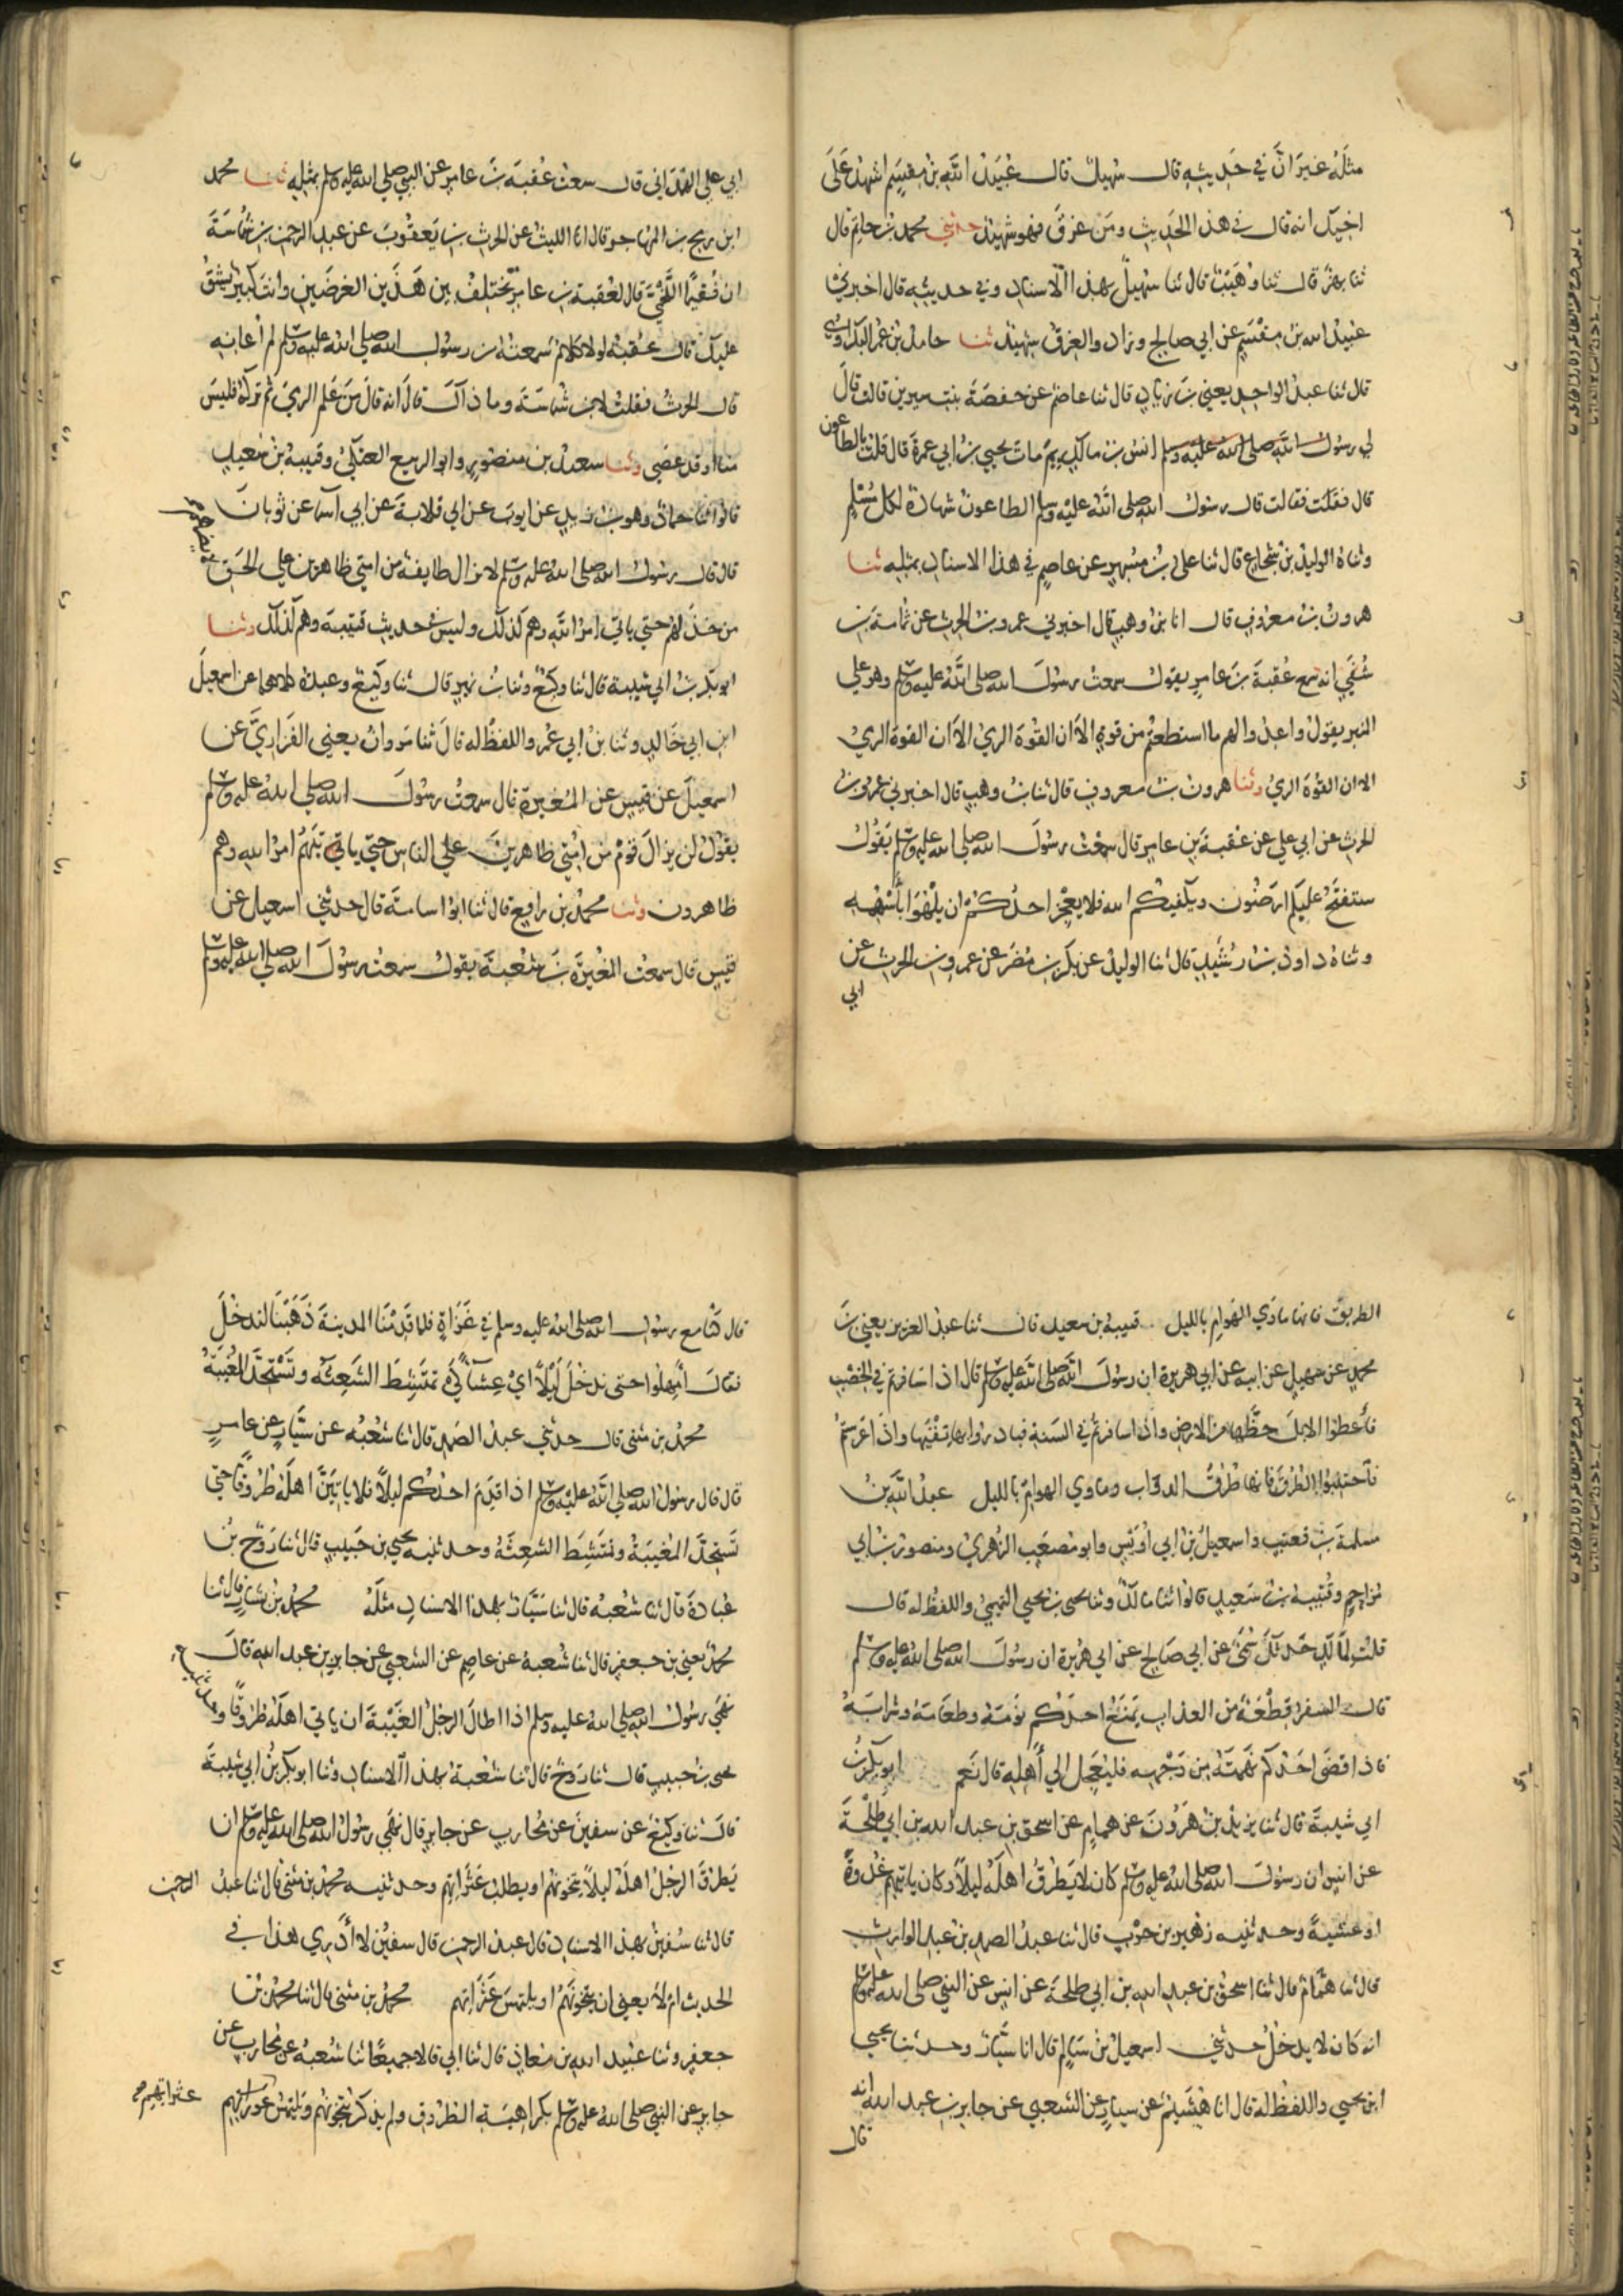 مثله غير ان في حديثه قال سهيل قال عبيد الله بن مقسم اشهد على
اخيك انه قال في هذا الحديث ومن غرق فهو شهيد حدثني محمد بن حاتم قال
ثنا بهز قال ثنا وهيب قال ثنا سهيل بهذا الاسناد وفي حديثه قال اخبرني
عبيد الله بن مقسم عن ابي صالح وزاد والغرق شهيد ثنا حامد بن عمر البكراوي
قال ثنا عبد الواحد يعني بن زياد قال ثنا عاصم عن حفصة بنت سيرين قالت قال
لي رسول الله صلى الله عليه وسلم انس بن مالك بم مات يحيى بن ابي عمرة قال قلت بالطاعون
قال فقلت فقالت قال رسول الله صلى الله عليه وسلم الطاعون شهادة لكل مسلم
وثناه الوليد بن شجاع قال ثنا على بن مسهر عن عاصم في هذا الاسناد بمثله ثنا
هرون بن معروف قال انا بن وهب قال اخبرني عمرو بن الحرث عن ثمامة بن
شفي انه سمع عقبة بن عامر يقول سمعت رسول الله صلى الله عليه وسلم وهو على
المنبر يقول واعدوا لهم ما استطعتم من قوة الا ان القوة الرمي الا ان القوة الرمي
الا ان القوة الرمي وثنا هرون بن معروف قال ثنا بن وهب قال اخبرني عمرو بن
الحرث عن ابي علي عن عقبة بن عامر قال سمعت رسول الله صلى الله عليه وسلم يقول
ستفتح عليكم ارضون ويكفيكم الله فلا يعجز احدكم ان يلهوا باسهمه
وثناه داود بن رشيد قال ثنا الوليد عن بكر بن مضر عن عمرو بن الحرث عن
ابي
ابي علي الهمداني قال سمعت عقبة بن عامر عن النبي صلى الله عليه وسلم بمثله ثنا محمد
ابن ريح بن المهاجر قال انا الليث عن الحرث بن يعقوب عن عبد الرحمن بن شماسة
ان فقيما اللخمي قال لعقبة بن عامر تختلف بين هذين الغرضين وانت كبير يشق
عليك قال عقبة لولا كلام سمعته من رسول الله صلى الله عليه وسلم لم اعانه
قال الحرث فقلت لابن شماسة وما ذاك قال انه قال من علم الرمي ثم تركه فليس
منا او قد عصى وثنا سعيد بن منصور وابو الربيع العتكي وقتيبة بن سعيد
قالوا ثنا حماد وهو بن زيد عن ايوب عن ابي قلابة عن ابي اسما عن ثوبان
قال قال رسول الله صلى الله عليه وسلم لا تزال طايفة من امتي ظاهرين على الحق لا يضرهم
من خذلهم حتى ياتي امر الله وهم كذلك وليس في حديث قتيبة وهم كذلك وثنا
ابو بكر بن ابي شيبة قال ثنا وكيع وثنا بن نمير قال ثنا وكيع وعبدة كلاهما عن اسمعيل
ابن ابي خالد وثنا بن ابي عمر واللفظ له قال ثنا مروان يعني الفزاري عن
اسمعيل عن قيس عن المغيرة قال سمعت رسول الله صلى الله عليه وسلم
يقول لن يزال قوم من امتي ظاهرين على الناس حتى ياتيهم امر الله وهم
ظاهرون وثنا محمد بن رافع قال ثنا ابو اسامة قال حدثني اسمعيل عن
قيس قال سمعت المغيرة بن شعبة يقول سمعت رسول الله صلى الله عليه وسلم
الطريق فانها ماوي الهوام بالليل قتيبة بن سعيد قال ثنا عبد العزيز يعني بن
محمد عن سهيل عن ابيه عن ابي هريرة ان رسول الله صلى الله عليه وسلم قال اذا سافرتم في الخصب
فاعطوا الابل حظها من الارض واذا سافرتم في السنة فبادروا بها نقيها واذا عرستم
فاجتنبوا الطرق فانها طرق الدواب وماوي الهوام بالليل عبد الله بن
مسلمة بن قعنب واسمعيل بن ابي اويس وابو مصعب الزهري ومنصور بن ابي
مزاحم وقتيبة بن سعيد قالوا ثنا مالك وثنا يحيى بن يحيى التميمي واللفظ له قال
قلت لمالك حدثك سمي عن ابي صالح عن ابي هريرة ان رسول الله صلى الله عليه وسلم
قال السفر قطعة من العذاب يمنع احدكم نومه وطعامه وشرابه
فاذا قضى احدكم نهمته من وجهه فليعجل الى اهله قال نعم ابو بكر بن
ابي شيبة قال ثنا يزيد بن هرون عن همام عن اسحق بن عبد الله بن ابي طلحة
عن انس ان رسول الله صلى الله عليه وسلم كان لا يطرق اهله ليلا وكان ياتيهم غدوة
او عشية وحدثنيه زهير بن حرب قال ثنا عبد الصمد بن عبد الوارث
قال ثنا همام قال ثنا اسحق بن عبد الله بن ابي طلحة عن انس عن النبي صلى الله عليه وسلم
انه كان لا يدخل حدثني اسمعيل بن سالم قال انا سيار وحدثنا يحيى
ابن يحيى واللفظ له قال انا هشيم عن سيار عن الشعبي عن جابر بن عبد الله انه
قال
قال كنا مع رسول الله صلى الله عليه وسلم في غزاة فلما قدمنا المدينة ذهبنا لندخل
فقال امهلوا حتى ندخل ليلا اي عشاء كي تمتشط الشعثه وتستحد المغيبة
محمد بن مثنى قال حدثني عبد الصمد قال ثنا شعبه عن سيار عن عامر
قال قال رسول الله صلى الله عليه وسلم اذا قدم احدكم ليلا فلا ياتين اهله طروقا حتى
تستحد المغيبة وتمتشط الشعثة وحدثنيه يحيى بن حبيب قال ثنا روح بن
عبادة قال ثنا شعبة قال ثنا سيار بهذا الاسناد مثله محمد بن بشار قال ثنا
محمد يعني بن جعفر قال ثنا شعبة عن عاصم عن الشعبي عن جابر بن عبد الله قال
نهى رسول الله صلى الله عليه وسلم اذا اطال الرجل الغيبة ان ياتي اهله طروقا
يحيى بن حبيب قال ثنا روح قال ثنا شعبة بهذا الاسناد وثنا ابو بكر بن ابي شيبة
قال ثنا وكيع عن سفين عن محارب عن جابر قال نهى رسول الله صلى الله عليه وسلم ان
يطرق الرجل اهله ليلا يتخونهم او يطلب عثراتهم وحدثنيه محمد بن مثنى قال ثنا عبد الرحمن
قال ثنا سفين بهذا الاسناد قال عبد الرحمن قال سفين لا ادري هذا في
الحديث ام لا يعني ان يتخونهم او يلتمس عثراتهم محمد بن مثنى قال ثنا محمد بن
جعفر وثنا عبيد الله بن معاذ قال ثنا ابي قالا جميعا ثنا شعبة عن محارب عن
جابر عن النبي صلى الله عليه وسلم بكراهية الطروق ولم يذكر يتخونهم ويلتمس عوراتهم
عثراتهم